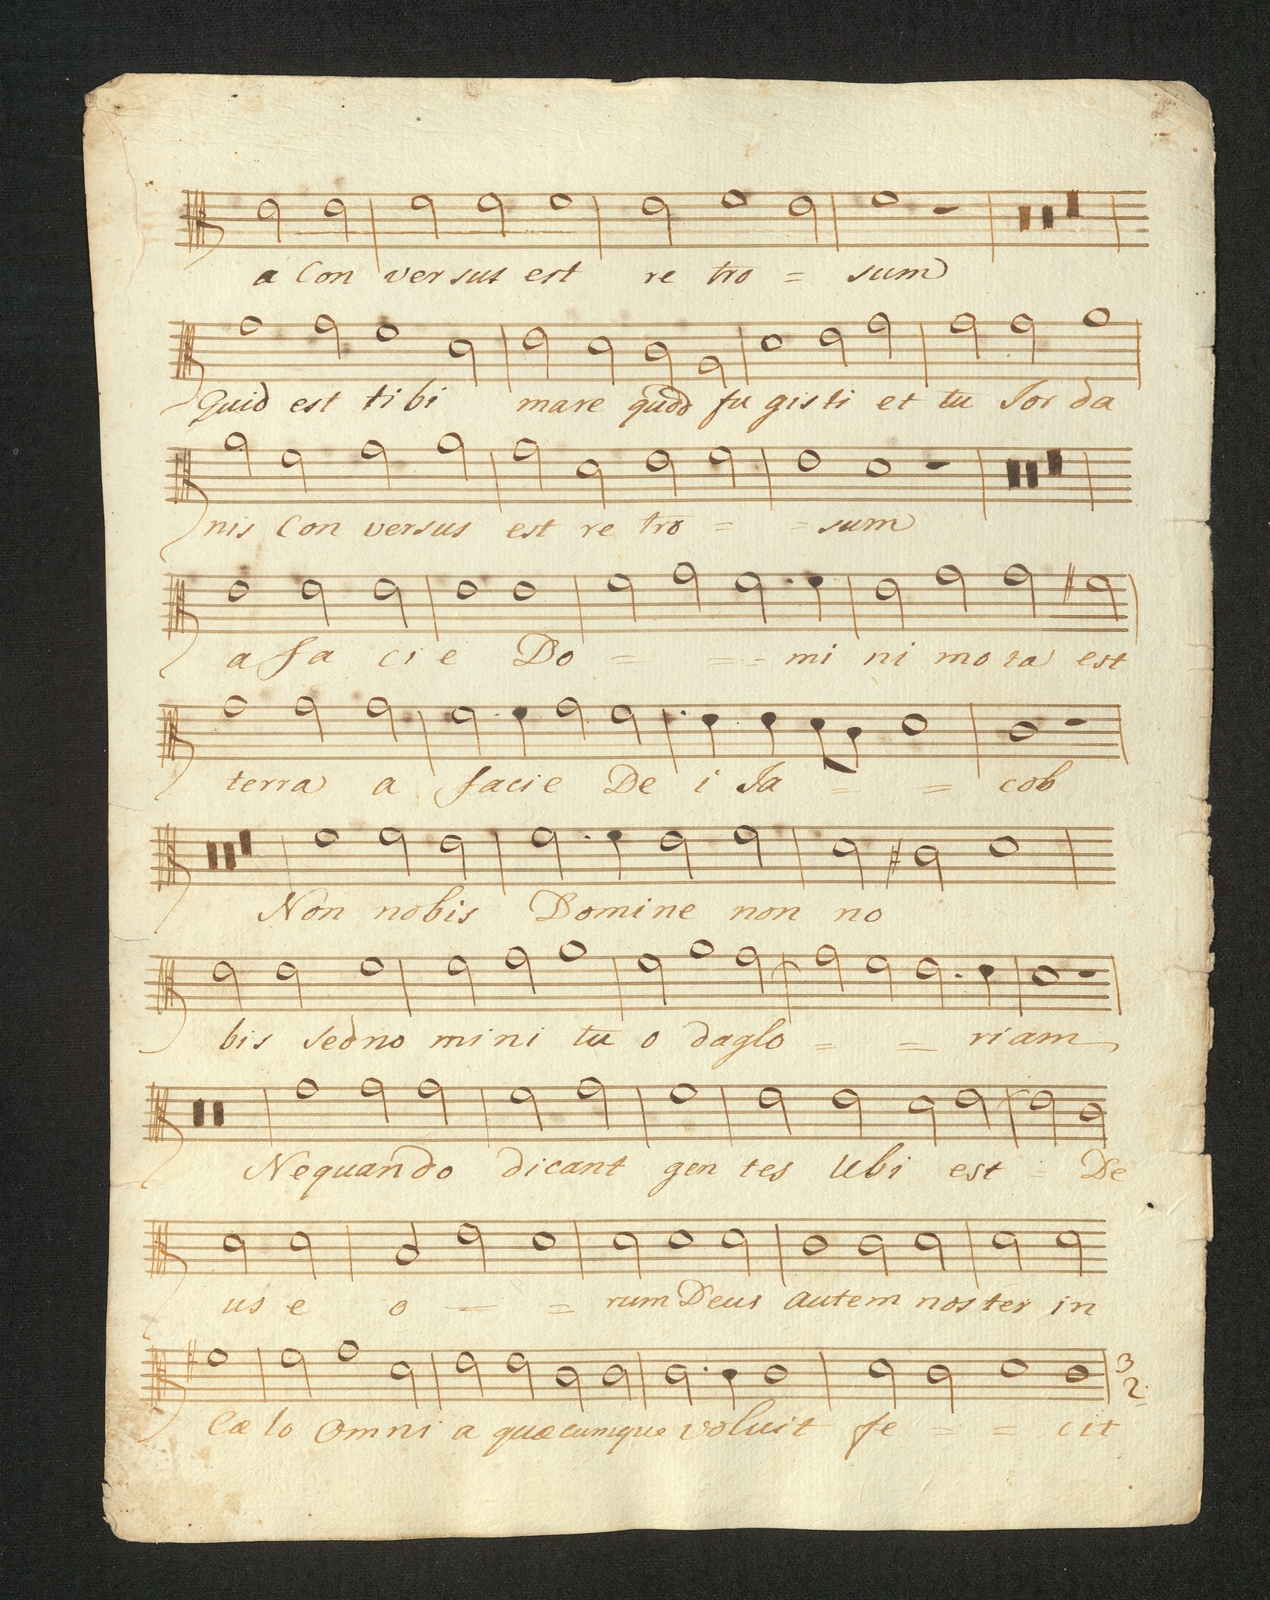 a Con versus est re tro = sum
Quid est tibi mare quod fu gisti et tu Jor da
nis Con versus est re tro = = sum
a fa ci e Do = = = mi ni mo ta est
terra a facie De i Ja = = cob
Non nobis Domine non no
bis sed no mini tu o da glo = = riam
Nequando dicant gen tes Ubi est = De
us e o = = rum Deus autem noster in
Cæ lo Omni a quæcumque voluit fe = = cit
3
2